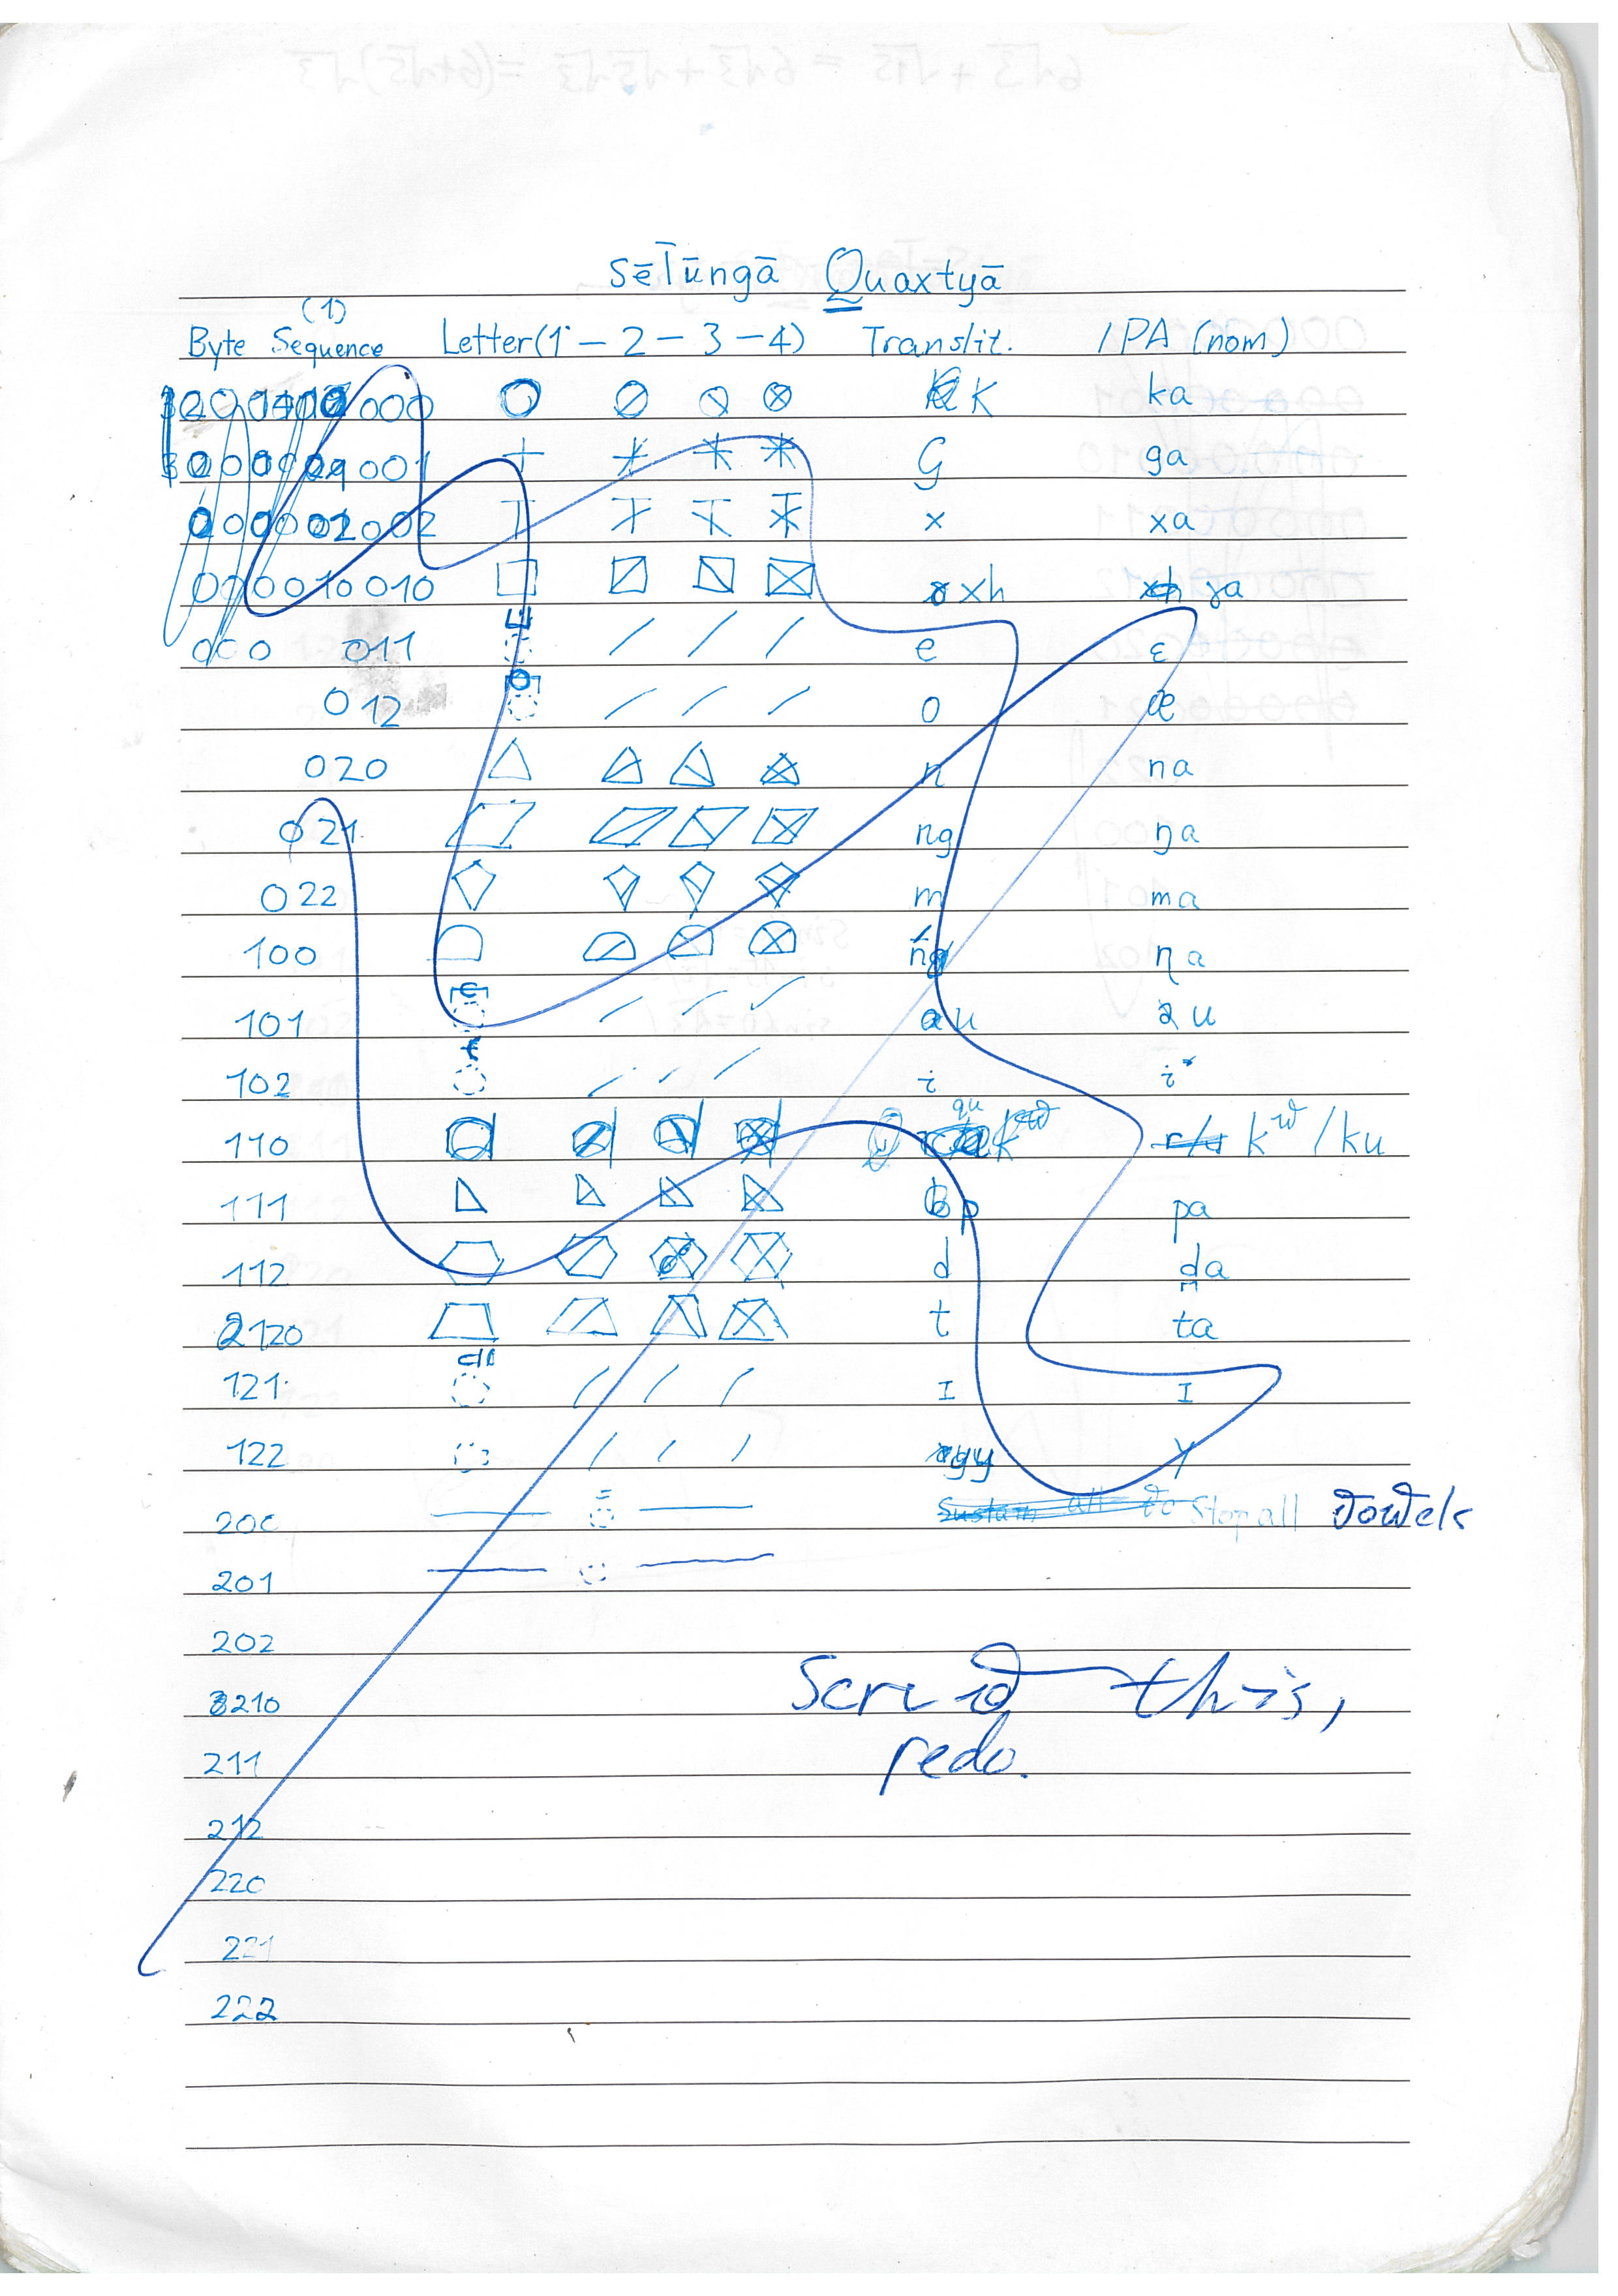 Sēl̄ūngā Quaxtyā
(1)
Byte Sequence Letter(1 - 2 - 3 - 4) Translit. IPA (nom)
000 K ka
001 G ga
002 x xa
000010 010 xh ɣa
000 011 e ε
012 o œ
020 n na
021 ng ŋa
022 m ma
100
101 au au
102 i i
110 qu kʷ /ku
111 p pa
112 d d̪a
120 t ta
121 I I
122 y Y
200 Stop all vowels
201
202
210
211
212
220
221
222
Screw this,
redo.